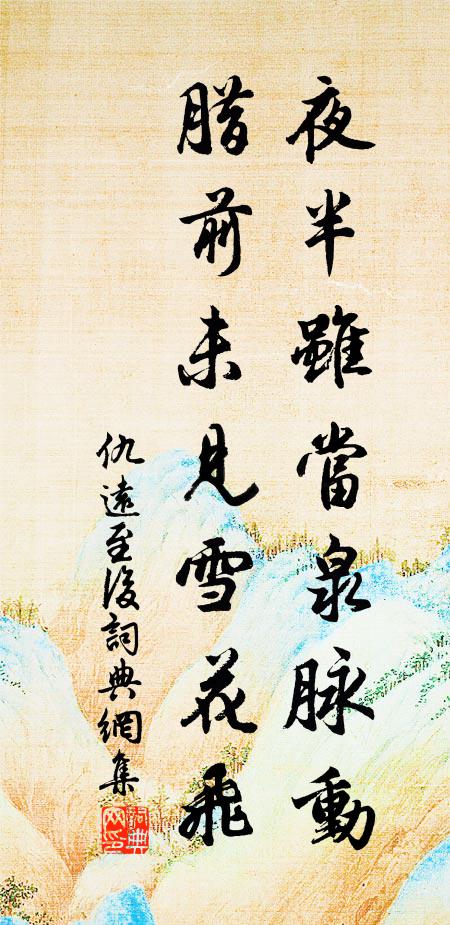 夜半雖當泉脉動
腊前未見雪花飛
仇遠至後詞典網集
詞典網印